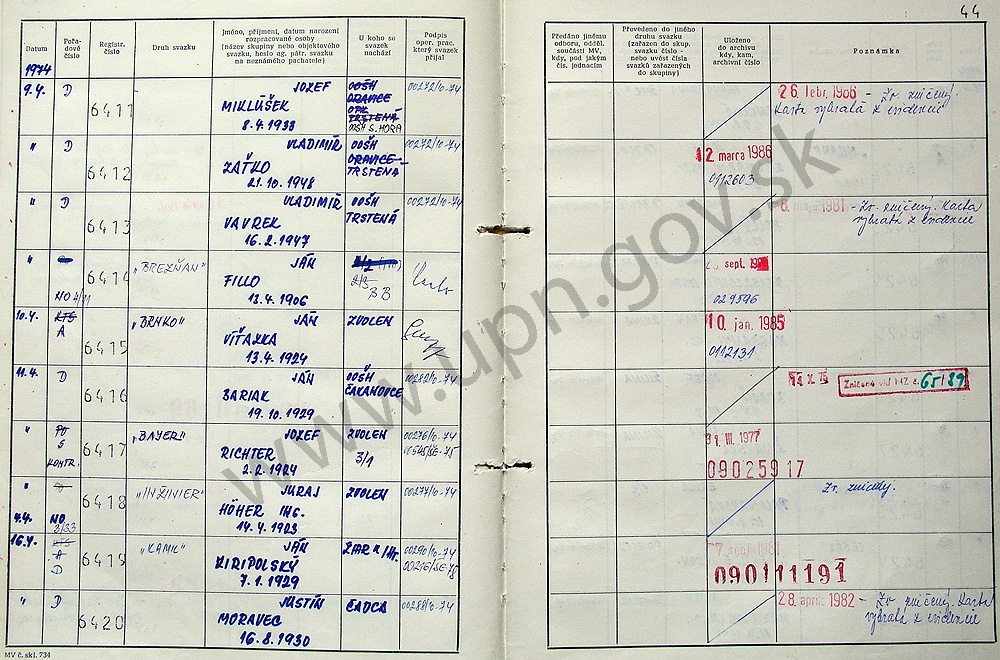 44
Datum
Pořa-
dové
číslo
Registr.
číslo
Druh svazku
Jméno, příjmení, datum narození
rozpracované osoby
(název skupiny nebo objektového
svazku, heslo ag. pátr. svazku
na neznámého pachatele)
U koho se
svazek
nachází
Podpis
oper. prac.
který svazek
přijal
Předáno jinému
odboru, odděl.
součásti MV,
kdy, pod jakým
čís. jednacím
Převedeno do jiného
druhu svazku
(zařazen do skup.
svazku číslo -
nebo uvést čísla
svazků zařazených
do skupiny)
Uloženo
do archivu
kdy, kam,
archivní číslo
Poznámka
1974
9.4. D 6411 JOZEF
MIKLÚŠEK
8.4.1933
OOŠH
ORAVICE
TRSTENÁ
OOŠH S. HORA
00272/10-74
26. febr. 1986 - Zv. zničený.
Karta vybratá z evidencie
" D 6412 VLADIMÍR
ZAŤKO
21.10.1948
OOŠH
ORAVICE
TRSTENÁ
00272/10-74
12. marca 1986
0112603
" D 6413 VLADIMÍR
VAVREK
16.2.1947
OOŠH
TRSTENÁ
00272/10-74
8. 1981 - Zv. zničený. Karta
vybratá z evidencie
" 6414 "BREZŇAN" JÁN
FILLO
13.4.1906
NO 4/11
2/3
BB
sept.
029596
10.4. KTS
A
6415 "BRKO" JÁN
VÍŤAZKA
13.4.1924
ZVOLEN
10. jan. 1985
0112131
11.4. D 6416 JÁN
BARIAK
19.10.1929
OOŠH
ČAKANOVCE
00282/10-74
Zničené viď NZ č. 65/89
" PO
S
KONTR.
6417 "BAYER" JOZEF
RICHTER
2.2.1924
ZVOLEN
3/1
00276/10-74
31. III. 1977
09025917
" D 6418 "INŽINIER" JURAJ
HÖHER ING.
14.4.1923
4.4. NO
3/33
ZVOLEN
00277/10-74
Zv. zničený.
16.4. KTS
A
D
6419 "KAMIL" JÁN
KIRIPOLSKÝ
7.1.1929
00290/10-74
7. sept. 1981
090111191
" D 6420 JUSTÍN
MORAVEC
16.8.1930
ČADCA
00288/10-74
28. apríl 1982 - Zv. zničený. Karta
vybratá z evidencie
MV č. skl. 734
www.upn.gov.sk